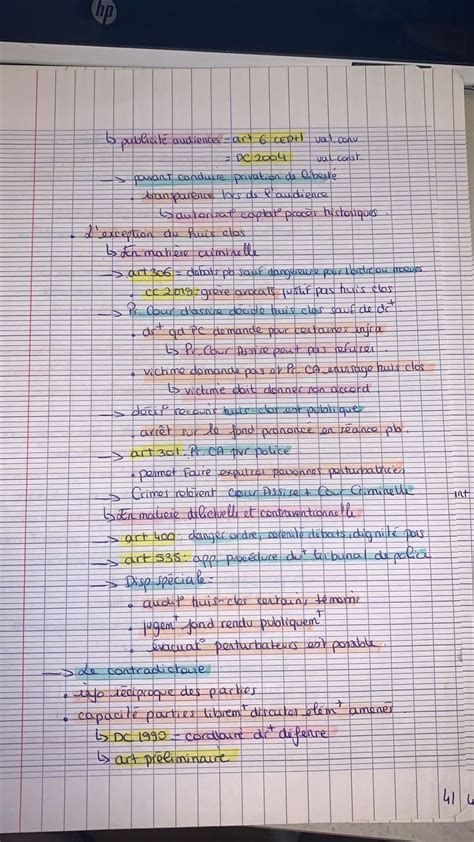 hp
↳ publicité audiences = art 6 CEDH val. conv
= DC 2004 val const.
→ pouvant conduire privation de liberté
• transparence lors de l'audience
↳ autorisat° captat° procès historiques.
• L'exception du huis clos
↳ En matière criminelle
→ art 306 = débats pb sauf dangereuse pour l'ordre ou moeurs
• CC 2019 = grève avocats justif pas huis clos
→ Pr. Cour d'assise décide huis clos sauf de drt
• drt qd PC demande pour certaines infra
↳ Pr. Cour Assise peut pas refuser.
• victime demande pas et Pr. CA envisage huis clos
↳ victime doit donner son accord
→ décis° recours huis-clos est publique
• arrêt sur le fond prononcé en séance pb.
→ art 301 : Pr. CA pvr police
• permet faire expulser personnes perturbatrices
→ Crimes relèvent Cour Assise + Cour Criminelle
↳ En matière délictuelle et contraventionnelle
→ art 400 : danger ordre, sérénité débats, dignité pers
→ art 535 : app. procédure dvt tribunal de police
→ Disp spéciale =
• audit° huis-clos certain, témoins
• jugemt fond rendu publiquemt
• évacuat° perturbateurs est possible.
→ Le contradictoire
• info réciproque des parties
• capacité parties libremt discuter élémt amenés
↳ DC 1990 = corollaire drt défense
↳ art préliminaire
41